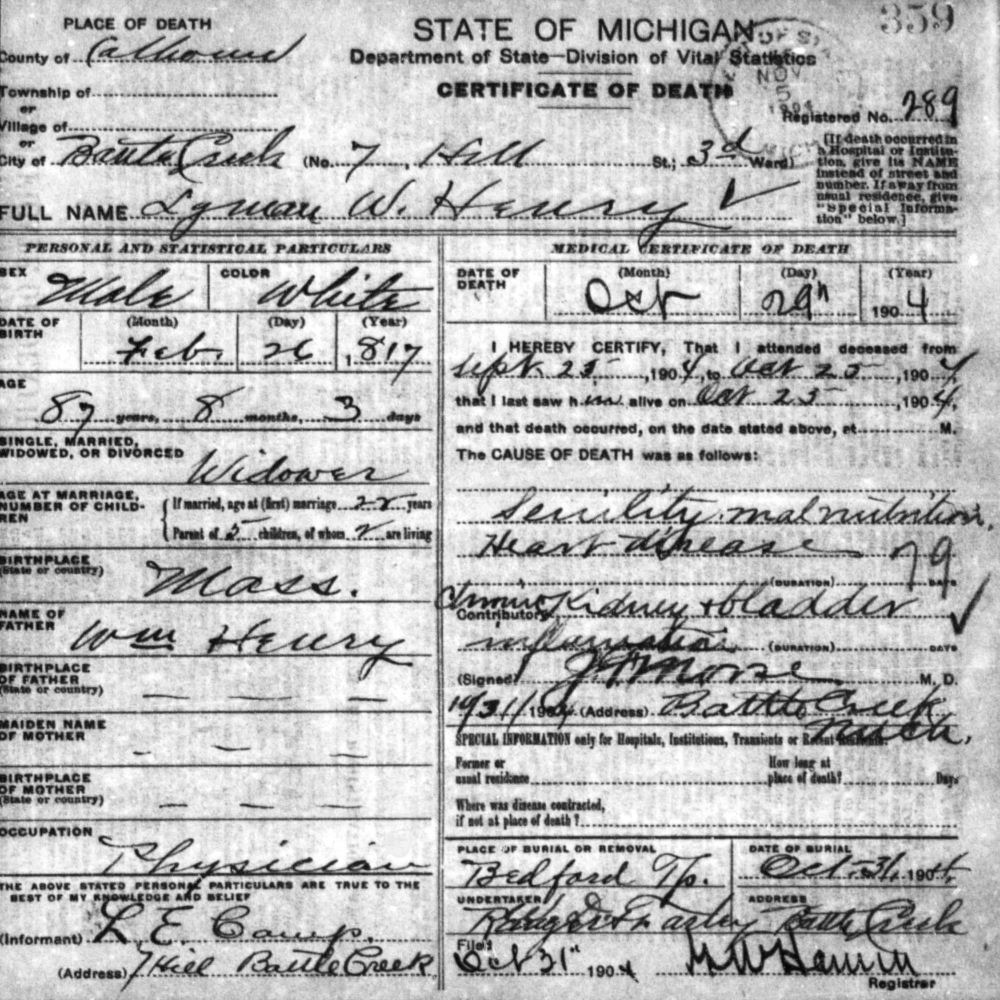 359
PLACE OF DEATH
STATE OF MICHIGAN
County of Calhoun
Department of State—Division of Vital Statistics
Township of
CERTIFICATE OF DEATH
NOV 5
or
Village of
Registered No. 289
or
City of Battle Creek (No. 7 Hill St.; 3d Ward)
[If death occurred in
a Hospital or Institu-
tion, give its NAME
instead of street and
number. If away from
usual residence, give
"Special Informa-
tion" below.]
FULL NAME Lyman W. Henry ✓
PERSONAL AND STATISTICAL PARTICULARS
SEX Male
COLOR White
DATE OF BIRTH
(Month) (Day) (Year)
Feb. 26, 1817
AGE
87 years, 8 months, 3 days
SINGLE, MARRIED,
WIDOWED, OR DIVORCED
Widower
AGE AT MARRIAGE,
NUMBER OF CHILD-
REN
If married, age at (first) marriage 22 years
Parent of 5 children, of whom 2 are living
BIRTHPLACE
(State or country)
Mass.
NAME OF
FATHER
Wm Henry
BIRTHPLACE
OF FATHER
(State or country)
— — —
MAIDEN NAME
OF MOTHER
— — —
BIRTHPLACE
OF MOTHER
(State or country)
— — —
OCCUPATION
Physician
THE ABOVE STATED PERSONAL PARTICULARS ARE TRUE TO THE
BEST OF MY KNOWLEDGE AND BELIEF
(Informant) L. E. Camp.
(Address) 7 Hill Battle Creek
MEDICAL CERTIFICATE OF DEATH
DATE OF
DEATH
(Month) (Day) (Year)
Oct 29" 1904
I HEREBY CERTIFY, That I attended deceased from
Sept. 25, 1904, to Oct 25, 1904,
that I last saw him alive on Oct 25, 1904,
and that death occurred, on the date stated above, at M.
The CAUSE OF DEATH was as follows:
Senility. malnutrition,
Heart disease 79
(DURATION) DAYS
Contributory Chronic Kidney + bladder ✓
inflammation (DURATION) DAYS
(Signed) J. F. Morse M. D.
10/31/1904 (Address) Battle Creek
Mich.
SPECIAL INFORMATION only for Hospitals, Institutions, Transients or Recent Residents.
Former or
usual residence
How long at
place of death? Days
Where was disease contracted,
if not at place of death?
PLACE OF BURIAL OR REMOVAL
Bedford Tp.
DATE OF BURIAL
Oct-31, 1904.
UNDERTAKER
Farley
ADDRESS
Battle Creek
Filed
Oct 31" 1904
Registrar